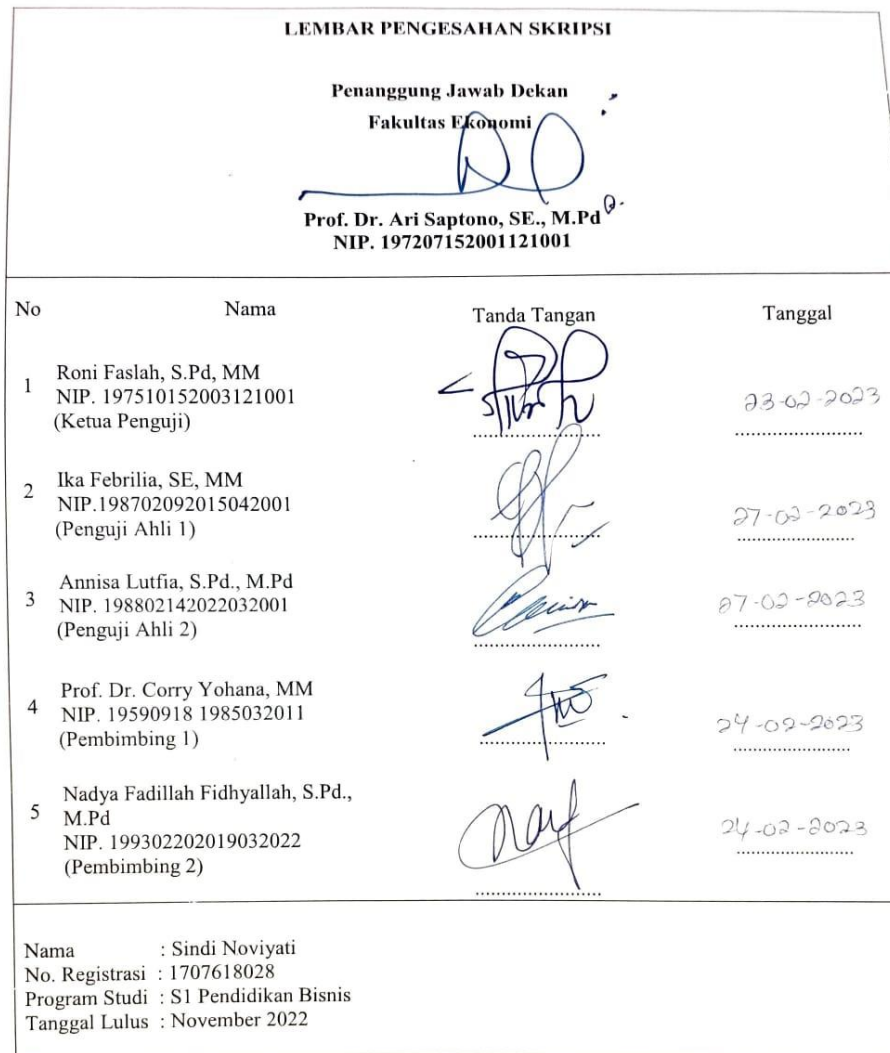 LEMBAR PENGESAHAN SKRIPSI
Penanggung Jawab Dekan
Fakultas Ekonomi
Prof. Dr. Ari Saptono, SE., M.Pd
NIP. 197207152001121001
No Nama Tanda Tangan Tanggal
1 Roni Faslah, S.Pd, MM
NIP. 197510152003121001
(Ketua Penguji)
23-02-2023
2 Ika Febrilia, SE, MM
NIP.198702092015042001
(Penguji Ahli 1)
27-02-2023
3 Annisa Lutfia, S.Pd., M.Pd
NIP. 198802142022032001
(Penguji Ahli 2)
27-02-2023
4 Prof. Dr. Corry Yohana, MM
NIP. 19590918 1985032011
(Pembimbing 1)
24-02-2023
5 Nadya Fadillah Fidhyallah, S.Pd.,
M.Pd
NIP. 199302202019032022
(Pembimbing 2)
24-02-2023
Nama : Sindi Noviyati
No. Registrasi : 1707618028
Program Studi : S1 Pendidikan Bisnis
Tanggal Lulus : November 2022